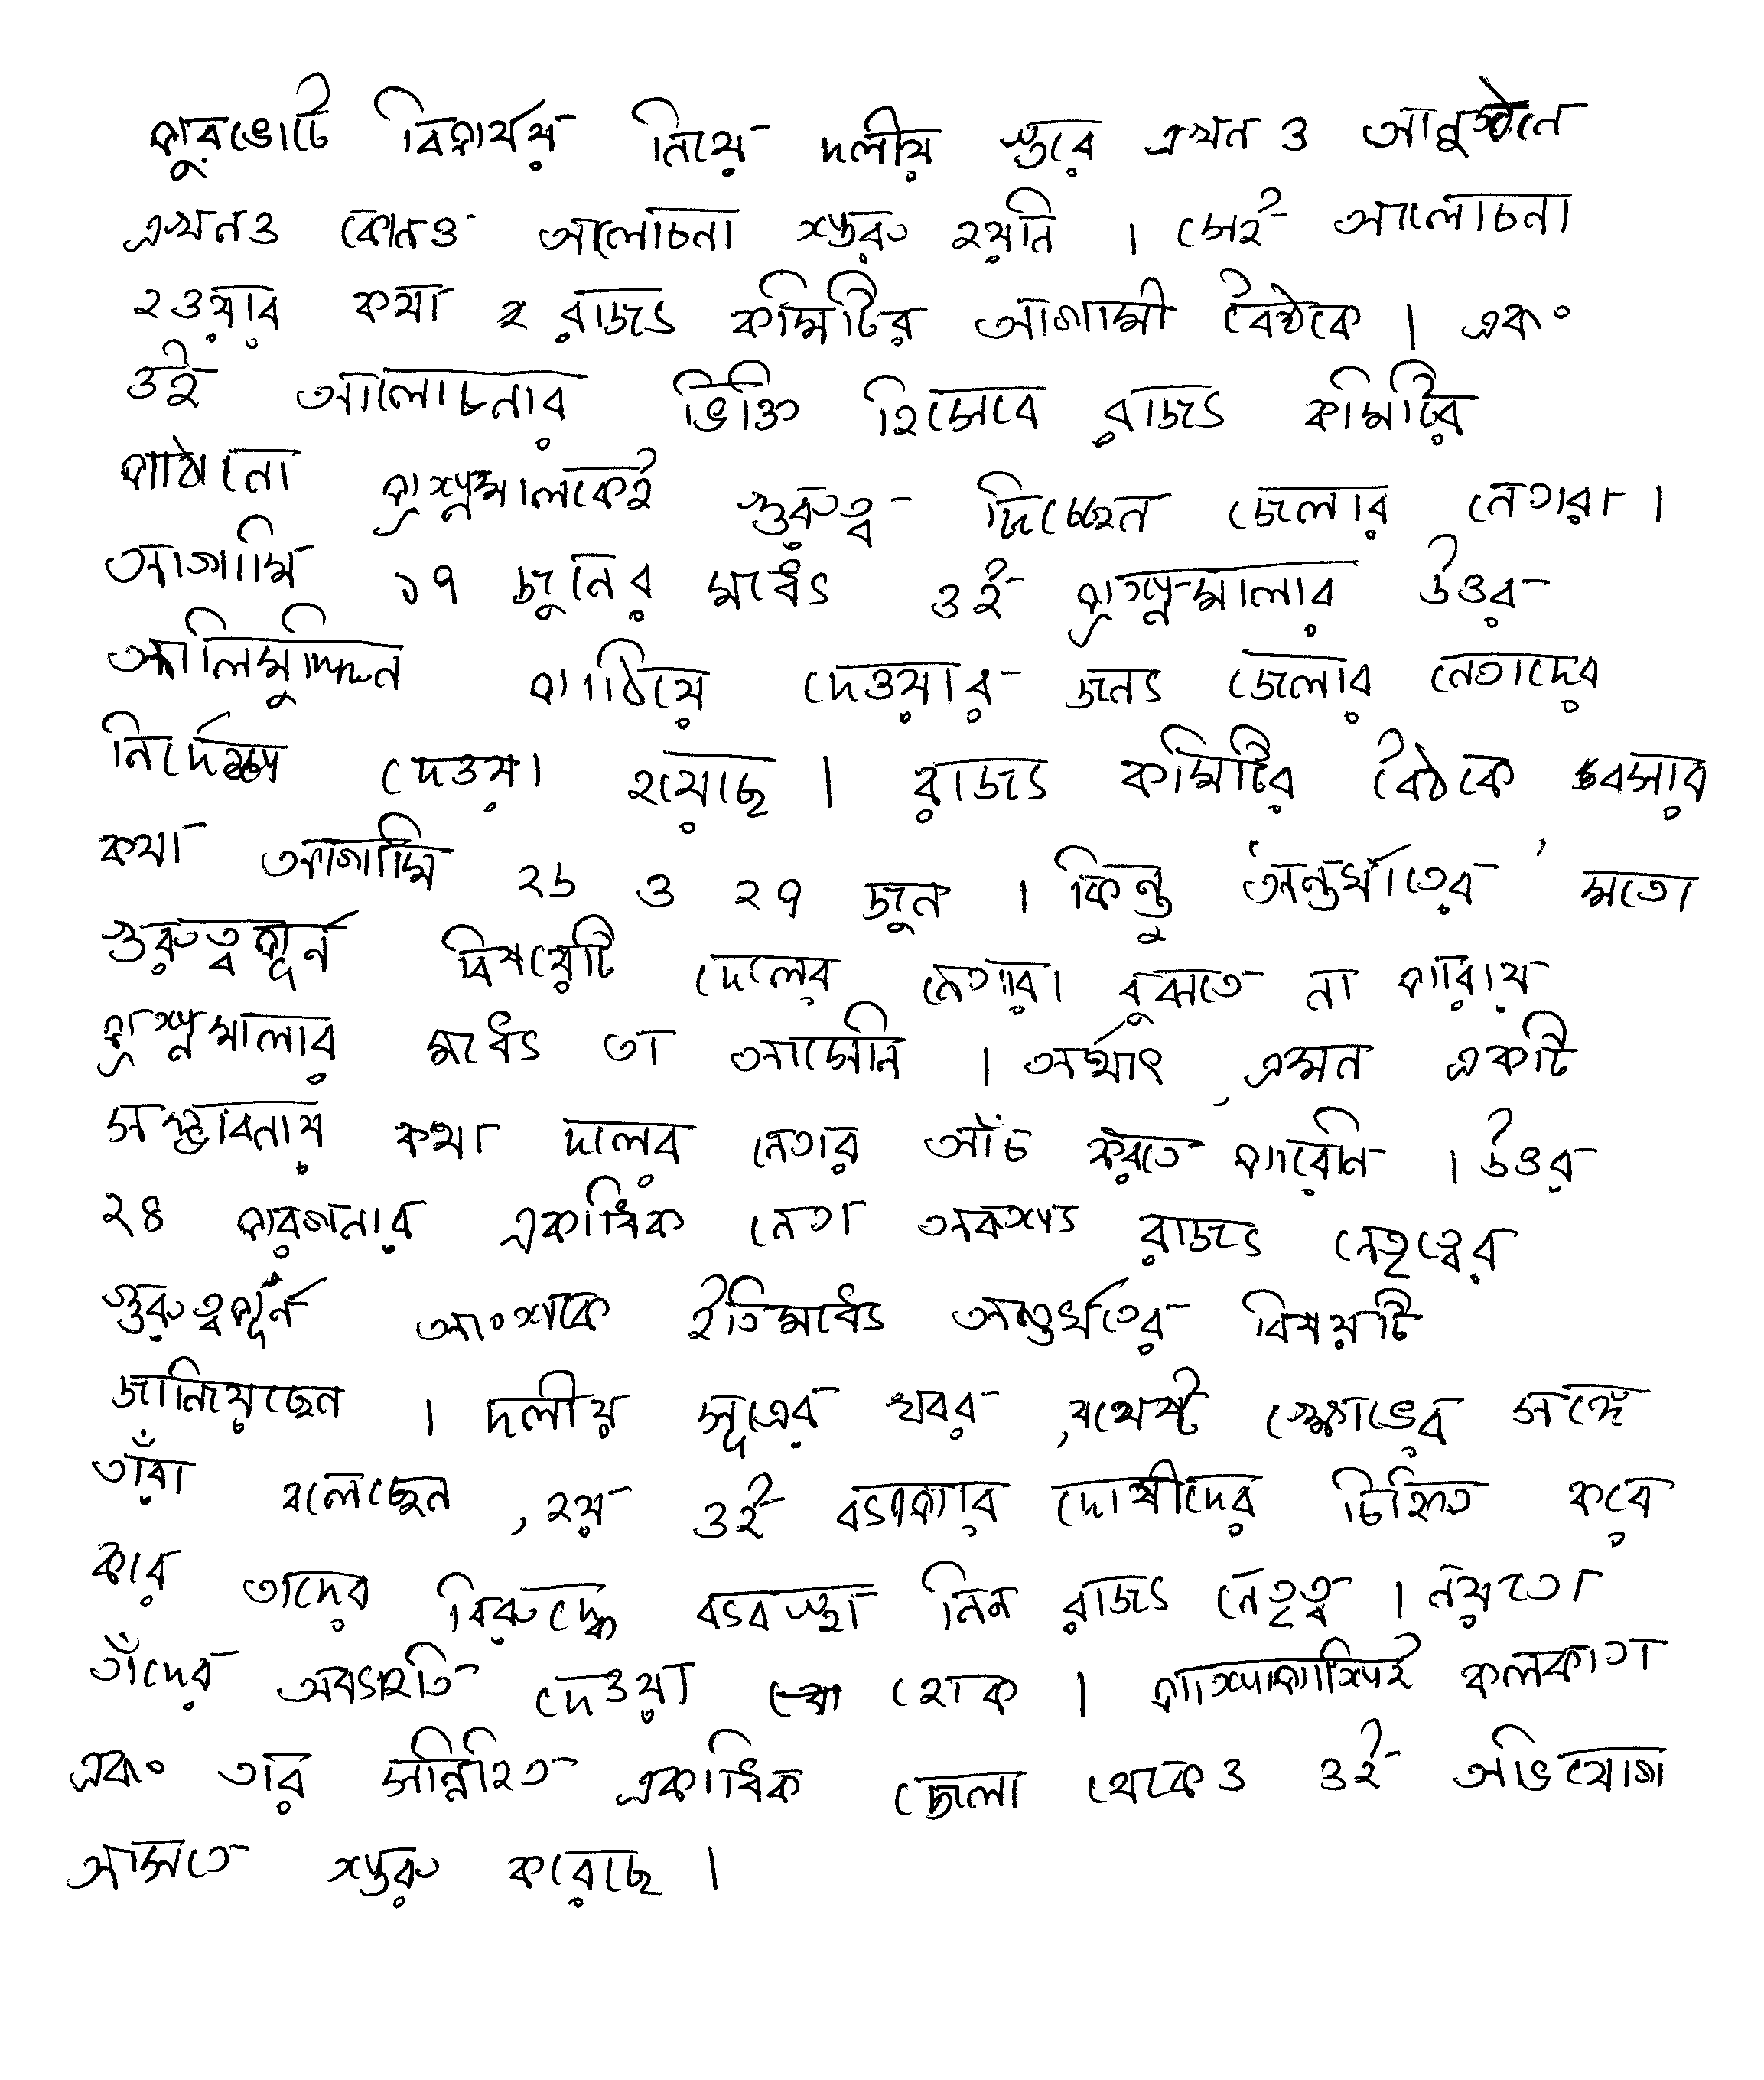 পুরভোটে বিপর্যয় নিয়ে দলীয় স্তরে এখন ও আনুষ্ঠানে
এখনও কোনও আলোচনা শুরু হয়নি । সেই আলোচনা
হওয়ার কথা রাজ্য কমিটির আগামী বৈঠকে । এবং
ওই আলোচনার ভিত্তি হিসেবে রাজ্য কমিটির
পাঠানো প্রশ্নমালাকেই গুরুত্ব দিচ্ছেন জেলার নেতারা ।
আগামি ১৭ জুনের মধ্যে ওই প্রশ্নমালার উত্তর
আলিমুদ্দিন পাঠিয়ে দেওয়ার জন্য জেলার নেতাদের
নির্দেশ দেওয়া হয়েছে । রাজ্য কমিটির বৈঠকে বসার
কথা আগামি ২৬ ও ২৭ জুন । কিন্তু 'অন্তর্ঘাতের' মতো
গুরুত্বপূর্ন বিষয়েটি দেলের নেতারা বুঝতে না পারায়
প্রশ্নমালার মধ্যে তা আসেনি । অর্থাৎ, এমন একটি
সম্ভাবনায় কথা দলের নেতার আঁচ করতে পারেনি । উত্তর
২৪ পরগনার একাধিক নেতা অবশ্য রাজ্য নেতৃত্বের
গুরুত্বপূর্ন অংশকে ইতিমধ্যে অন্তর্ঘাতের বিষয়টি
জানিয়েছেন । দলীয় সূত্রের খবর, যথেষ্ট ক্ষোভের সঙ্গে
তাঁরা বলেছেন, হয় ওই ব্যাপার দোষীদের চিহ্নিত করে
করে তাদের বিরুদ্ধে ব্যবস্থা নিন রাজ্য নেতৃত্ব । নয়তো
তাঁদের অব্যাহতি দেওয়া হোক । পাশাপাশিই কলকাতা
এবং তার সন্নিহিত একাধিক জেলা থেকেও ওই অভিযোগ
আসতে শুরু করেছে ।